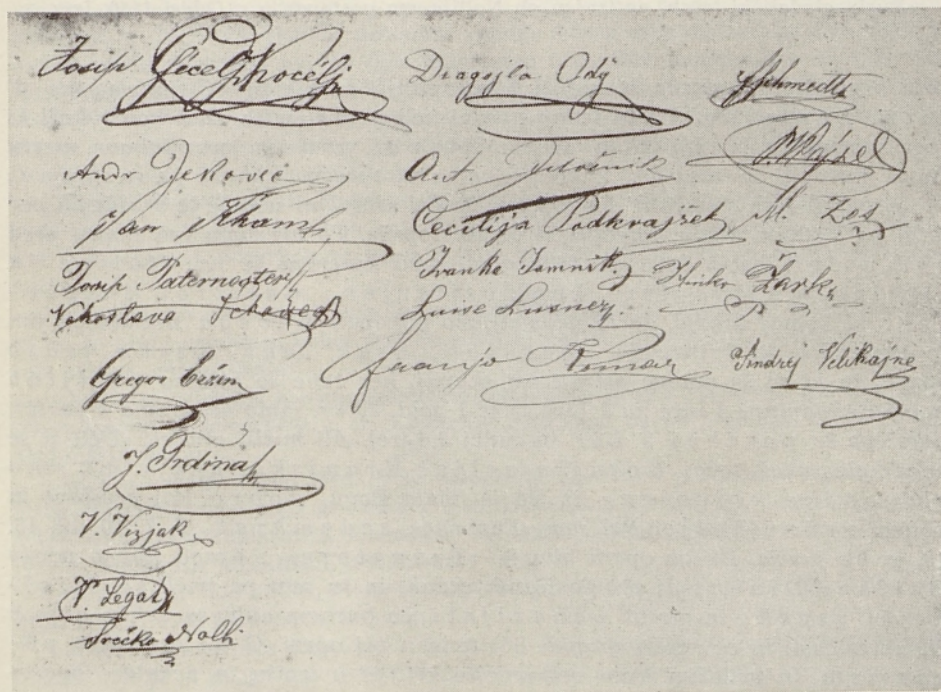 Josip Gecelj Kocelj
Andr Jekovec
Jan Kham
Josip Paternoster
Vekoslava
Gregor Eržen
J. Trdina
V. Vizjak
V. Legat
Srečko Nolli
Dragojla Odÿ
Ant. Jeločnik
Cecilija Podkrajšek
Ivanka Jamnik
Luise Lusner
Franjo Komar
Schmedt
Rajzel
M. Zos
Hinko Žark
Andrej Velikajne